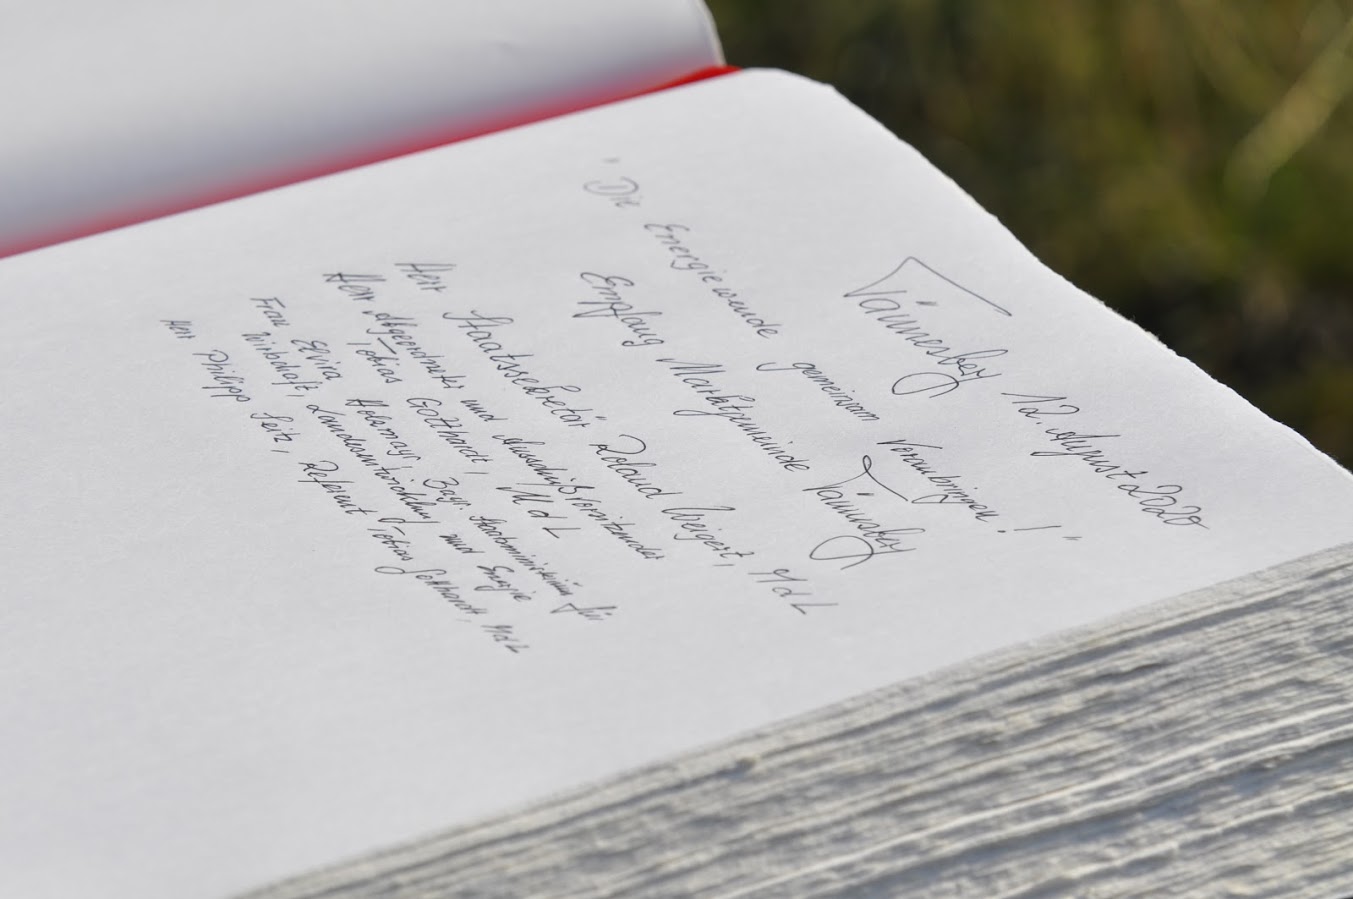 Tännesberg 12. August 2020
"Die Energiewende gemeinsam voranbringen!"
Empfang Marktgemeinde Tännesberg
Herr Staatssekretär Roland Weigert, MdL
Herr Abgeordneter und Ausschußvorsitzender
Tobias Gotthardt, MdL
Frau Elvira Bay. Staatsministerium für
Wirtschaft, Landesentwicklung und Energie
Herr Philipp Seitz, Referent Tobias Gotthardt, MdL